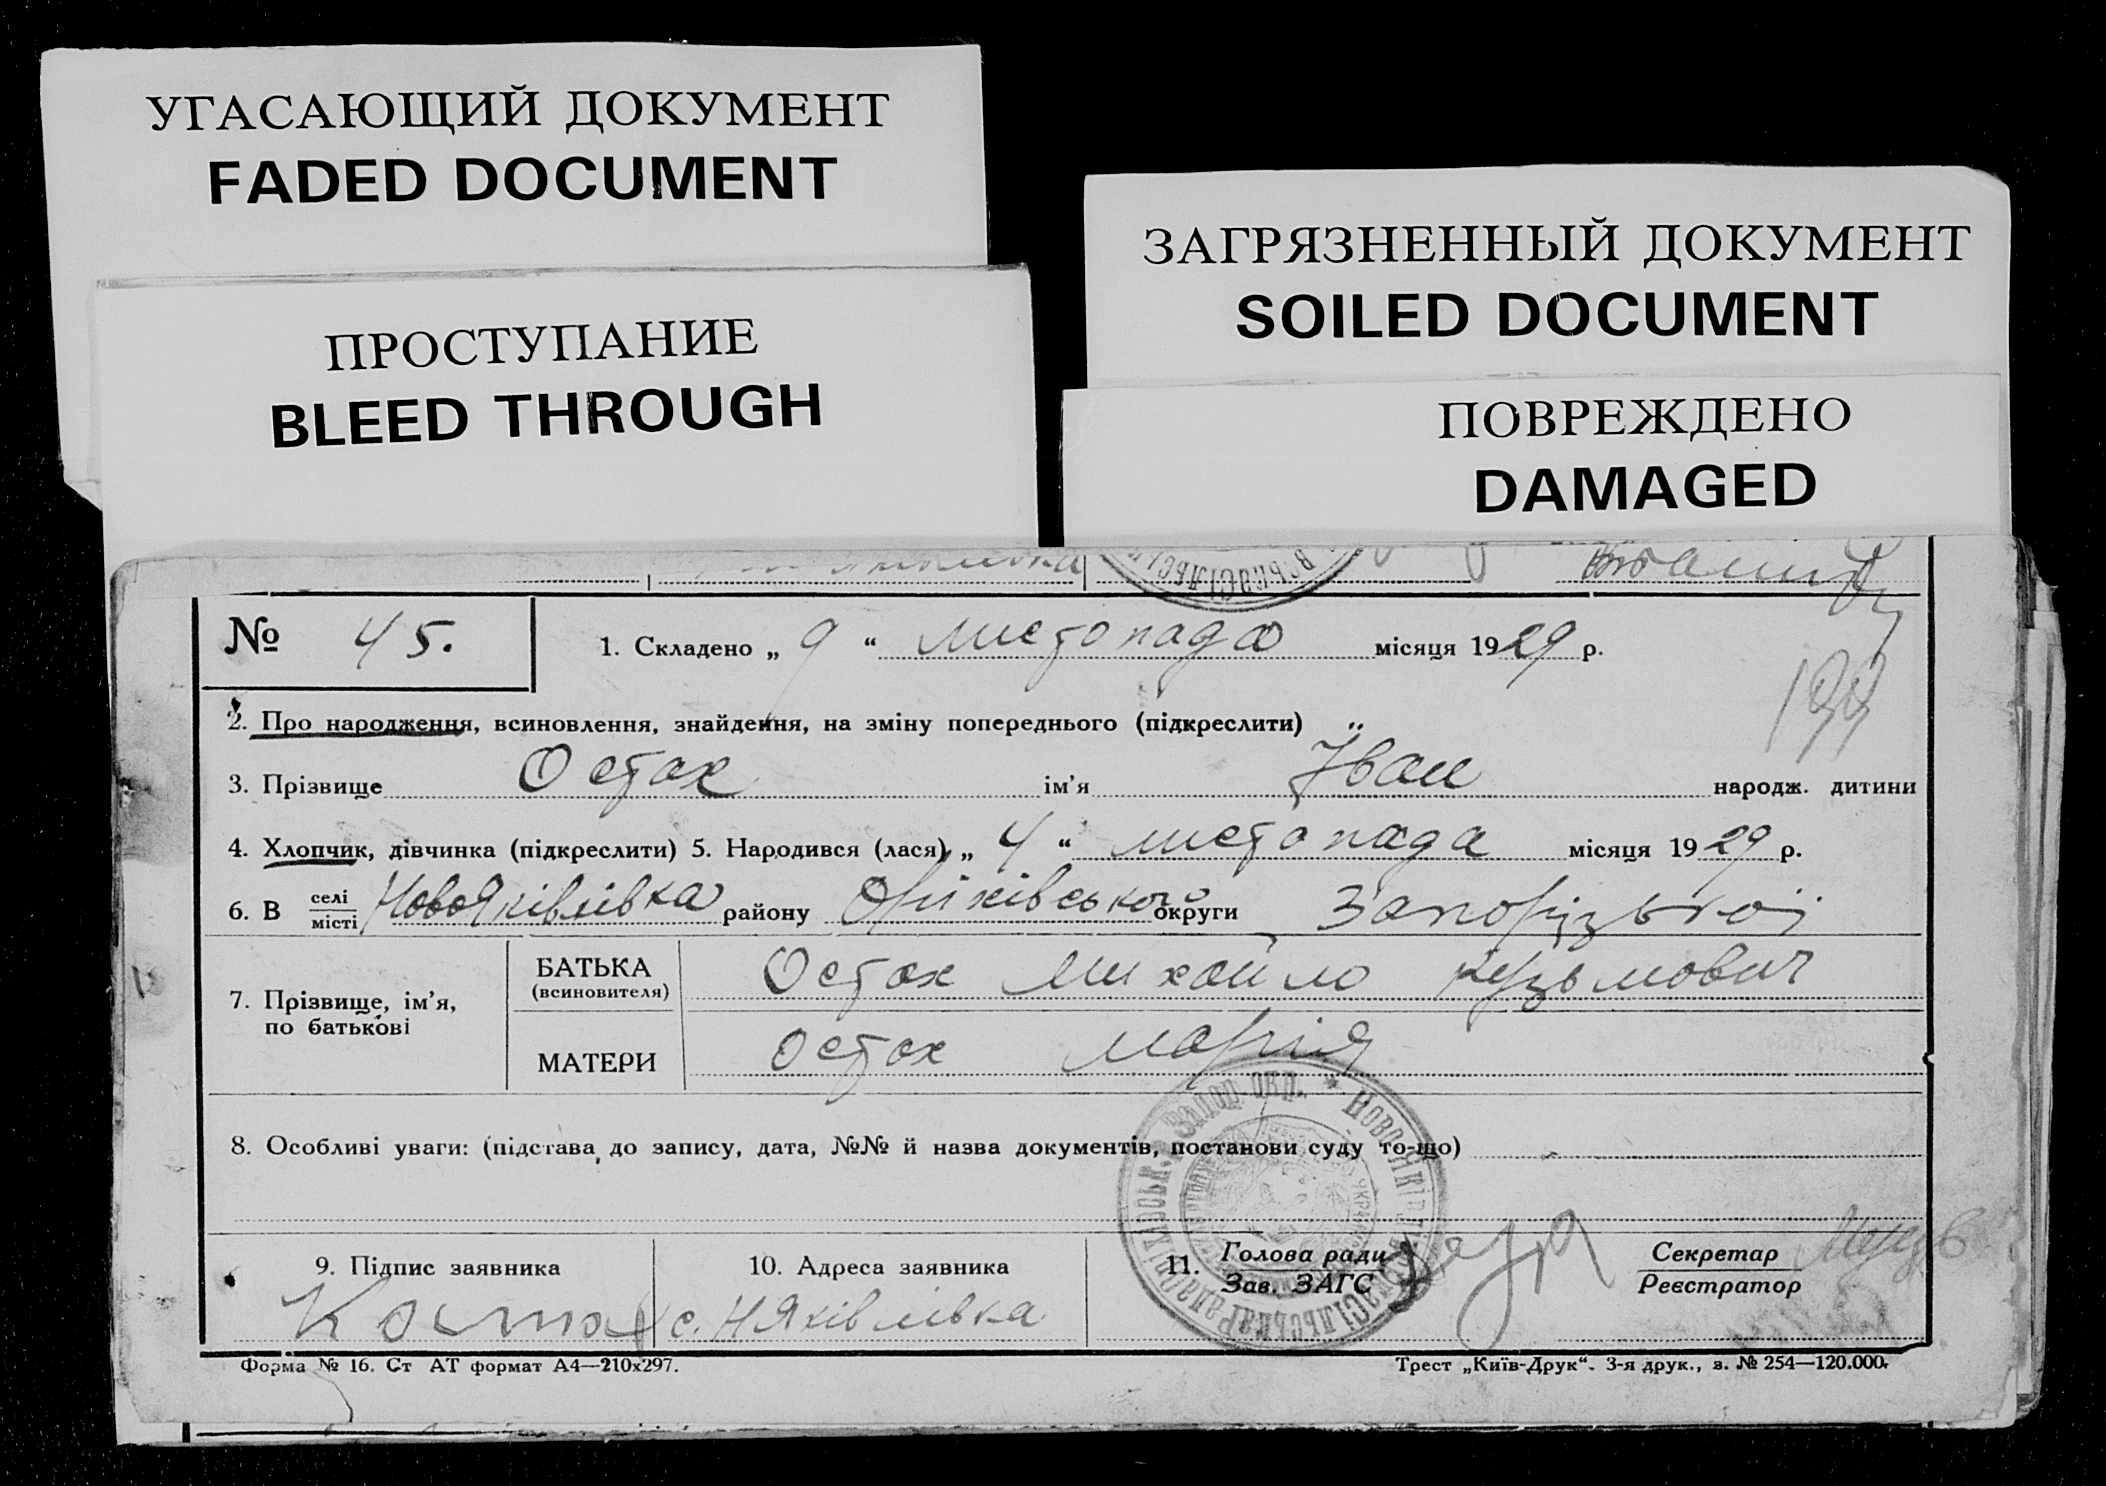 УГАСАЮЩИЙ ДОКУМЕНТ
FADED DOCUMENT
ПРОСТУПАНИЕ
BLEED THROUGH
ЗАГРЯЗНЕННЫЙ ДОКУМЕНТ
SOILED DOCUMENT
ПОВРЕЖДЕНО
DAMAGED
№ 45.
1. Складено „ 9 “ листопада місяця 1929 р.
2. Про народження, всиновлення, знайдення, на зміну попереднього (підкреслити)
3. Прізвище Остах ім’я Іван народж. дитини
4. Хлопчик, дівчинка (підкреслити) 5. Народився (лася) „ 4 “ листопада місяця 1929 р.
6. В селі / місті НовоЯківлівка району Оріхівського округи Запорізької
7. Прізвище, ім’я, по батькові
БАТЬКА (всиновителя) Остах Михайло Кузьмович
МАТЕРИ Остах Марія
8. Особливі уваги: (підстава, до запису, дата, №№ й назва документів, постанови суду то-що)
9. Підпис заявника
10. Адреса заявника с. НЯківлівка
11. Голова ради / Зав. ЗАГС
Секретар / Реєстратор
Форма № 16. Ст АТ формат А4—210х297.
Трест „Київ-Друк“. 3-я друк., з. № 254—120.000.